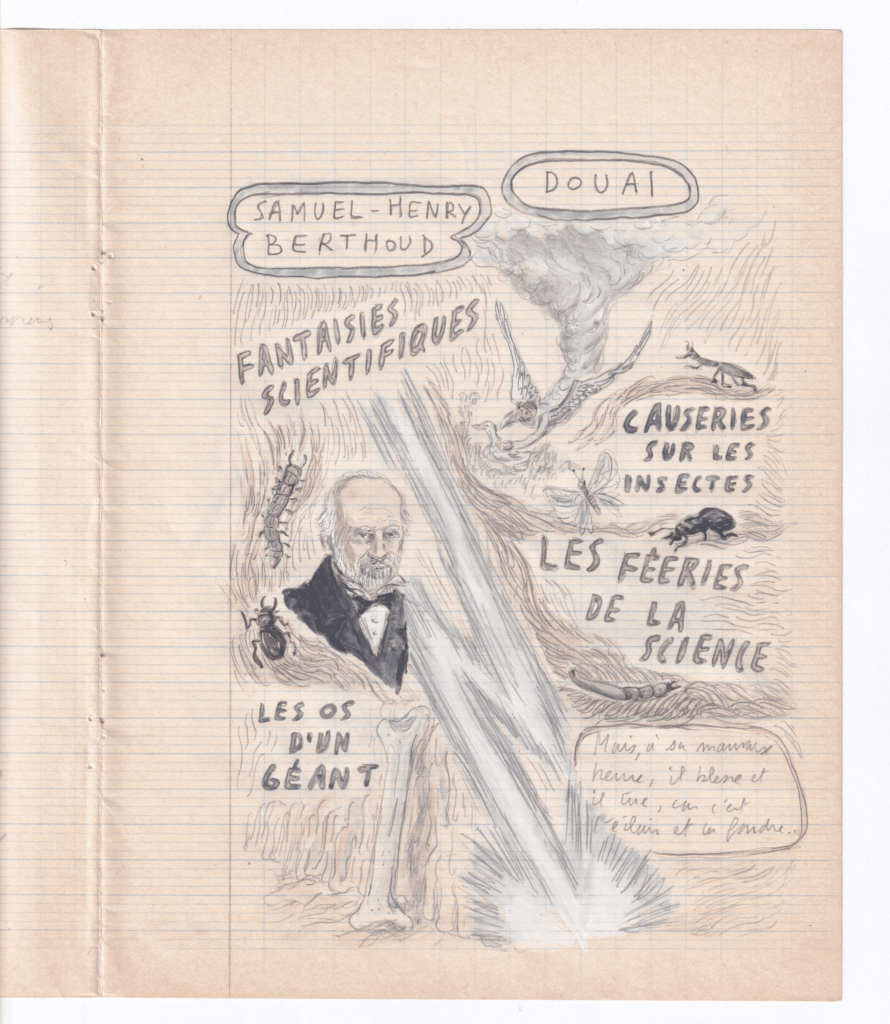 DOUAI
SAMUEL-HENRY
BERTHOUD
FANTAISIES
SCIENTIFIQUES
CAUSERIES
SUR LES
INSECTES
LES FÉERIES
DE LA
SCIENCE
LES OS
D'UN
GÉANT
Mais, à sa mauvaise
heure, il blesse et
il tue, car c'est
l'éclair et la foudre...